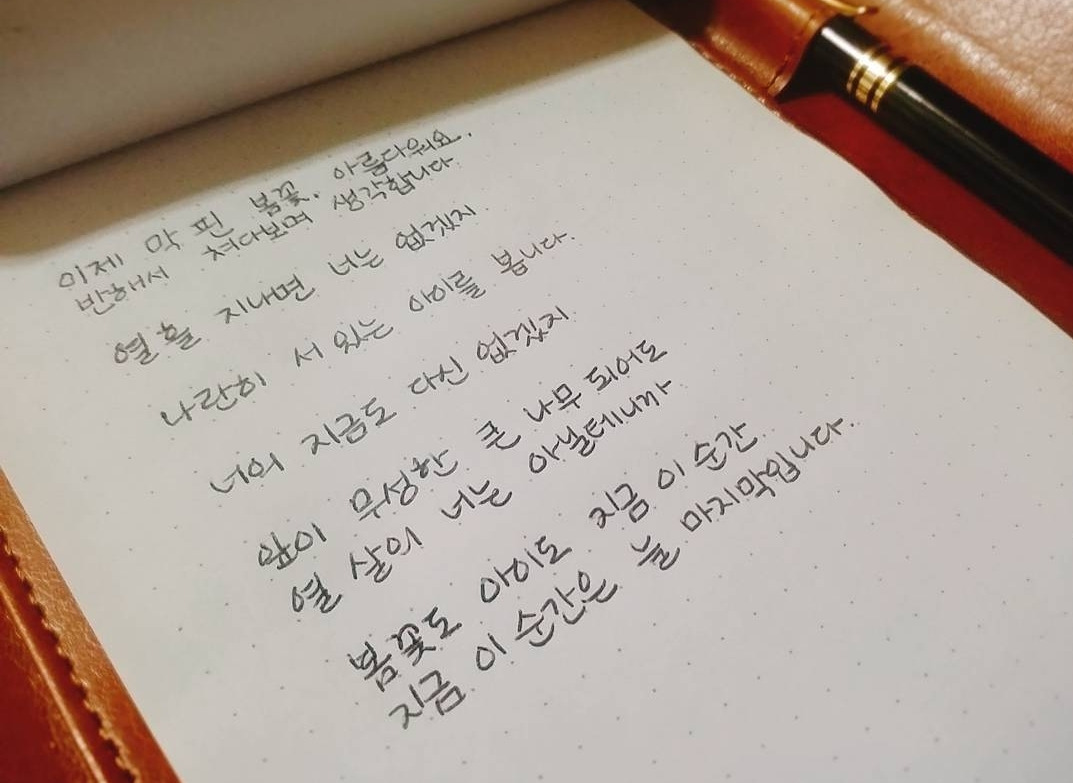 이제 막 핀 봄꽃. 아름다워요.
반해서 쳐다보며 생각합니다
열흘 지나면 너는 없겠지
나란히 서 있는 아이를 봅니다.
너의 지금도 다신 없겠지
잎이 무성한 큰 나무 되어도
열 살의 너는 아닐테니까
봄꽃도 아이도 지금 이 순간
지금 이 순간은 늘 마지막입니다.